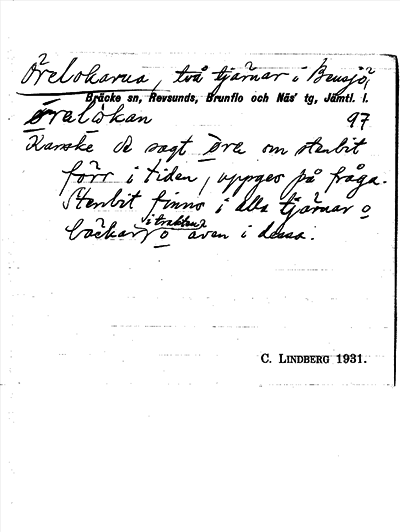 Örelokarna, två tjärnar i Bensjö,
Bräcke sn, Revsunds, Brunflo och Näs' tg, Jämtl. l.
örelokan 97
Kanske de sagt öre om stenbit
förr i tiden, uppges på fråga.
Stenbit finns i alla tjärnar o
bäckar i trakten o även i dessa.
C. LINDBERG 1931.